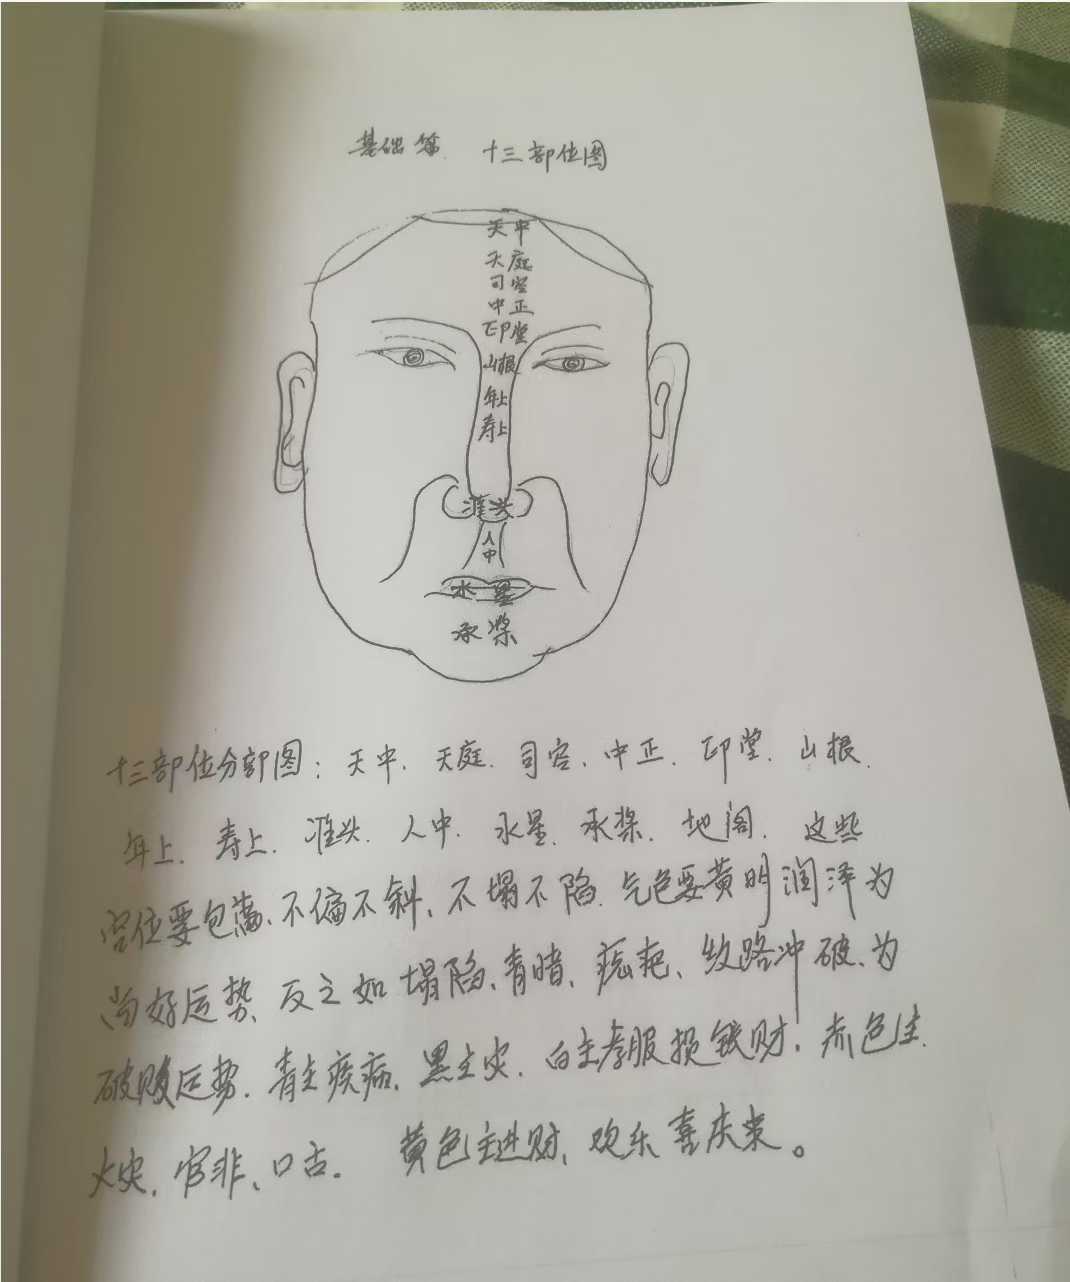 基础篇 十三部位图
天中
天庭
司空
中正
印堂
山根
年上
寿上
准头
人中
水星
承浆
十三部位分部图：天中、天庭、司空、中正、印堂、山根、
年上、寿上、准头、人中、水星、承浆、地阁、这些
宫位要包满、不偏不斜、不塌不陷、气色要黄明润泽为
尚好运势、反之如塌陷、青暗、痣疤、纹路冲破、为
破败运势、青主疾病、黑主灾、白主孝服损钱财、赤色主
火灾、官非、口舌。黄色主进财、欢乐喜庆来。